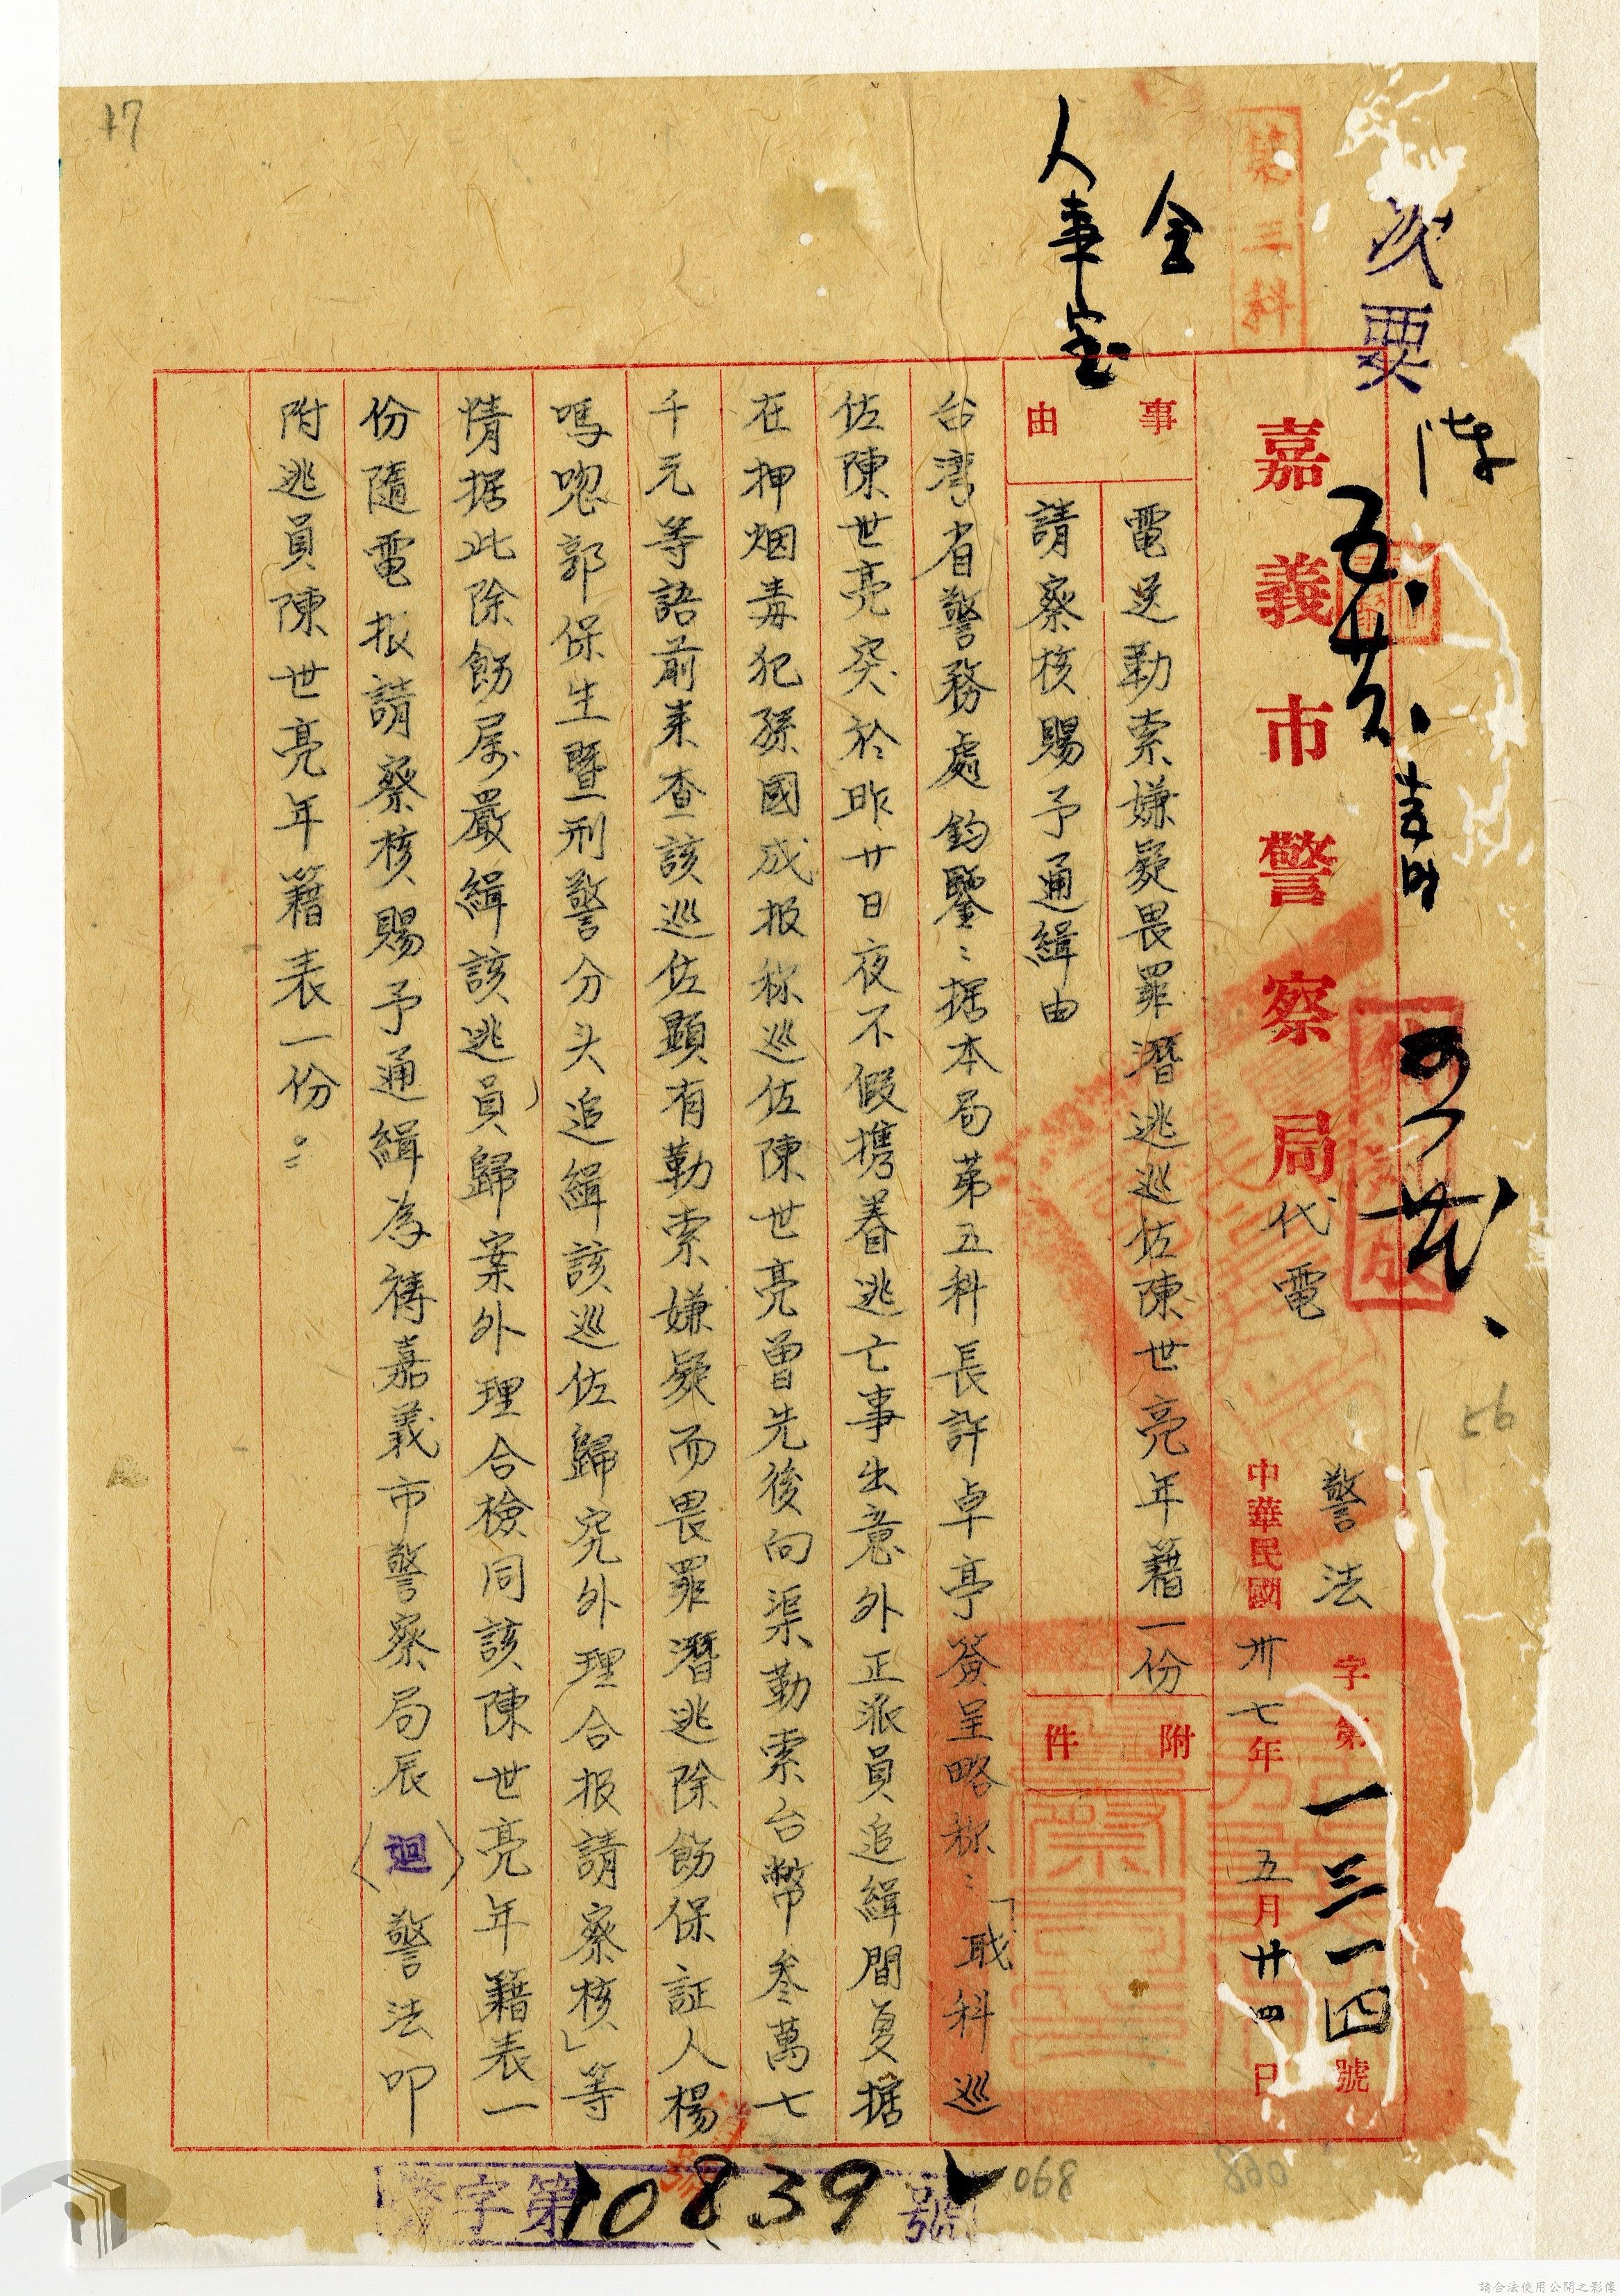 嘉義市警察局代電
警法字第一三一四號
中華民國卅七年五月廿四日
事由
電送勒索嫌疑畏罪潛逃巡佐陳世亮年籍一份
請察核賜予通緝由
附件
台灣省警務處鈞鑒：据本局第五科長許卓亭簽呈略称：「职科巡
佐陳世亮突於昨廿日夜不假携眷逃亡事出意外正派員追緝間复据
在押烟毒犯孫國成报称巡佐陳世亮曾先後向渠勒索台幣叁萬七
千元等語前来查該巡佐顯有勒索嫌疑而畏罪潛逃除飭保証人楊
鳴唿郭保生暨刑警分头追緝該巡佐歸究外理合报請察核」等
情据此除飭屬嚴緝該逃員歸案外理合檢同該陳世亮年籍表一
份隨電报請察核賜予通緝為禱嘉義市警察局辰（迴）警法叩
附逃員陳世亮年籍表一份：
第三科
人事室
警字第10839號
068
890
56
17
請合法使用公開之影像